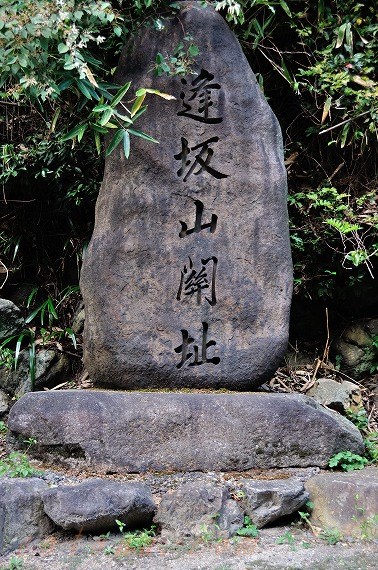 逢坂山關址